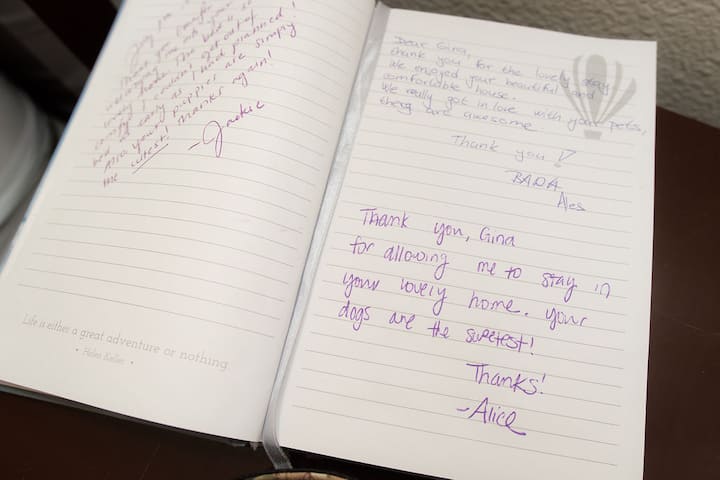 you with your
lovely home. The bed is so
comfy I couldn't get out of
bed as early as I had planned!
Also, your puppies are simply
the cutest! Thanks again!
-Jackie
Life is either a great adventure or nothing
• Helen Keller •
Dear Gina,
thank you for the lovely stay
We enjoyed your beautiful and
comfortable house.
We really got in love with your pets,
they are awesome
Thank you!
BADA
Ales
Thank you, Gina
for allowing me to stay in
your lovely home. Your
dogs are the sweetest!
Thanks!
-Alice